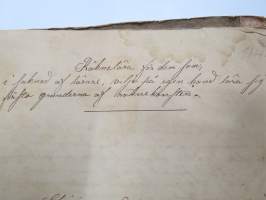 Räknelära för dem som,
i saknad af lärare, vilja på egen hand lära sig
första grunderna af räknekonsten.